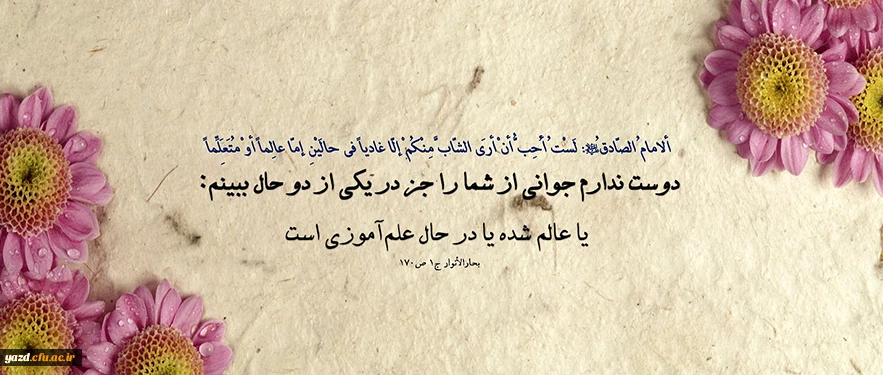 ألامامُ الصّادقُ ﷷ: لَسْتُ أُحِبُّ أنْ أرَی الشّابَّ مِنْكُمْ إلّا غادیاً فی حالَیْنِ إمّا عالِماً أوْ مُتَعَلِّماً
دوست ندارم جوانی از شما را جز در یکی از دو حال ببینم:
یا عالم شده یا در حال علم‌آموزی است
بحارالأنوار ج۱ ص۱۷۰
yazd.cfu.ac.ir